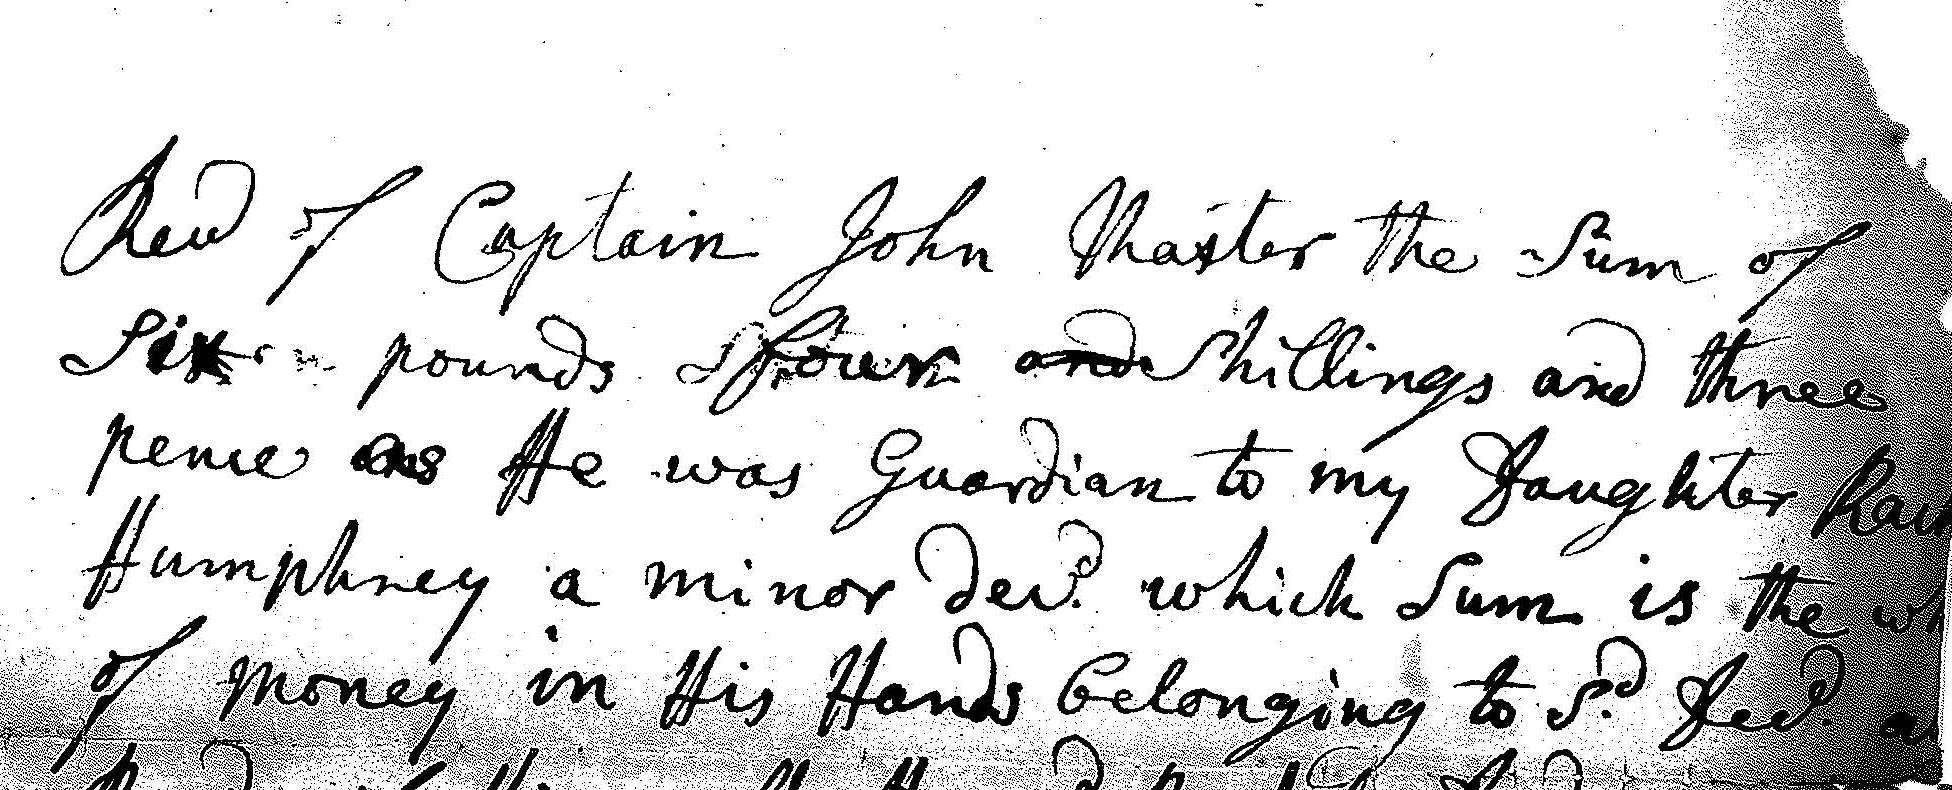 Recd of Captain John Master the Sum of
Six pounds four and Shillings and three
pence as He was Guardian to my Daughter
Humphrey a minor Decd. which Sum is the
of money in His Hands belonging to Sd. Decd.